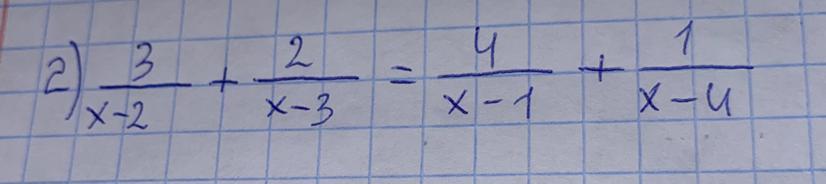 2) 3/(x-2) + 2/(x-3) = 4/(x-1) + 1/(x-4)